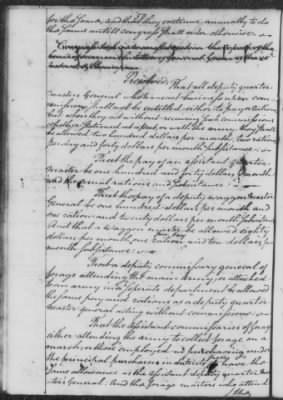 for the same and that they continue annually to do
the same untill congress shall order otherwise.
Congress took into consideration the report of the
Resolved, That all deputy quarter
masters General whatsoever business upon com-
mission, shall not be entitled either to pay or rations
but when they act without receiving such commissions
whether stationed at a post, or with the army, they shall
be allowed two hundred dollars per month, two rations
per day and forty dollars per month subsistence.
That the pay of an assistant quarter
master be one hundred and forty dollars per month
and the usual rations and subsistence.
That the pay of a deputy waggon master
General be one hundred dollars per month and
one ration and twenty dollars per month subsistence
And that a waggon master be allowed eighty
dollars per month, one ration and ten dollars per
month subsistence.
That a deputy commissary general of
forage attending the main army, or attached
to an army in a separate department be allowed
the same pay and rations as a deputy quarter
master general acting without commissions.
That the assistant commissaries of forage
either attending the army to collect forage on a
march, or those employed in purchasing under
the principal purchasers in districts have the
same allowance as the assistant deputy quarter
masters General. And that forage masters who attend
the